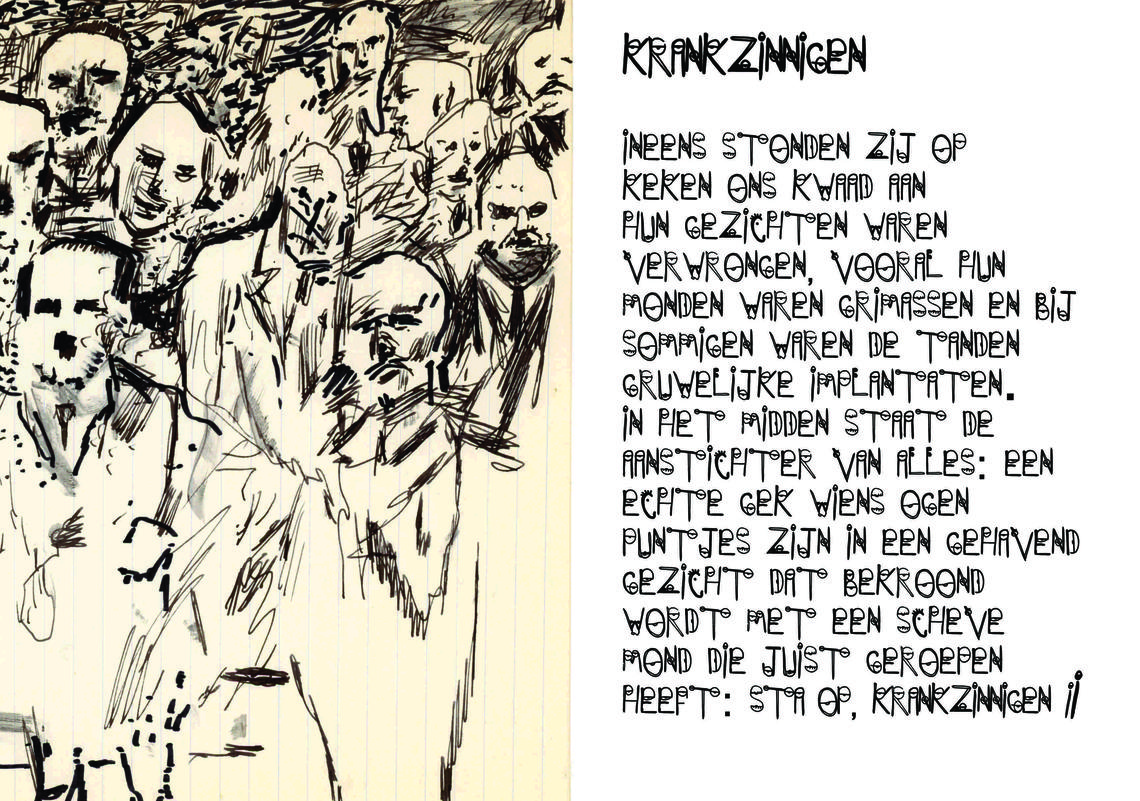 KRANKZINNIGEN
INEENS STONDEN ZIJ OP
KEKEN ONS KWAAD AAN
HUN GEZICHTEN WAREN
VERWRONGEN, VOORAL HUN
MONDEN WAREN GRIMASSEN EN BIJ
SOMMIGEN WAREN DE TANDEN
GRUWELIJKE IMPLANTATEN.
IN HET MIDDEN STAAT DE
AANSTICHTER VAN ALLES: EEN
ECHTE GEK WIENS OGEN
PUNTJES ZIJN IN EEN GEHAVEND
GEZICHT DAT BEKROOND
WORDT MET EEN SCHEVE
MOND DIE JUIST GEROEPEN
HEEFT: STA OP, KRANKZINNIGEN !!